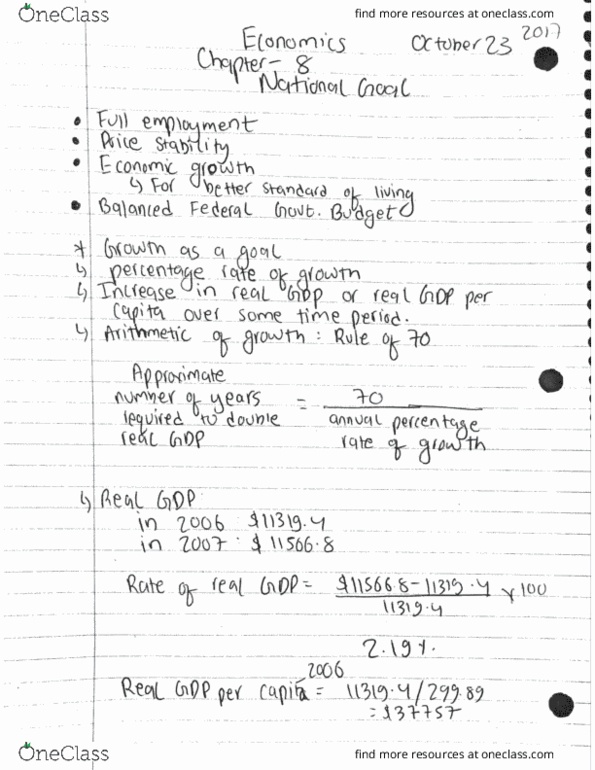 OneClass
find more resources at oneclass.com
Economics October 23 2017
Chapter- 8
National Goal
• Full employment
• Price stability
• Economic growth
↳ For better standard of living
• Balanced Federal Govt. Budget
* Growth as a goal
↳ percentage rate of growth
↳ Increase in real GDP or real GDP per
capita over some time period.
↳ Arithmetic of growth : Rule of 70
Approximate
number of years = 70
required to double annual percentage
real GDP rate of growth
↳ Real GDP
in 2006 $11319.4
in 2007 $ 11566.8
Rate of real GDP = $11566.8 - 11319.4 x 100
11319.4
2.19%.
2006
Real GDP per capita = 11319.4 / 299.89
= $37757
OneClass
find more resources at oneclass.com